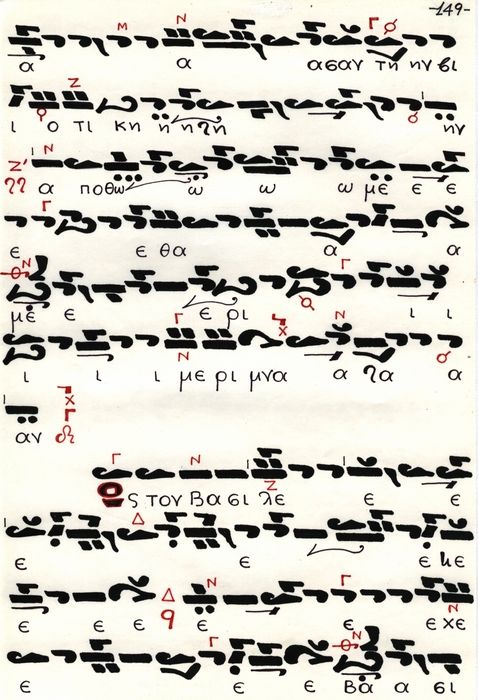 -149-
α α ασαν τη ην βι
ι ο τι κη η η γη ην
α ποθω ω ω ω με ε ε
ε ε θα α α
με ε ε ρι ι ι
ι ι ι με ρι μνα α γα α
αν
Ως τον βα σι λε ε ε
ε ε ε
ε ε ε ε ε ε χε
ε ε ε βα α σι